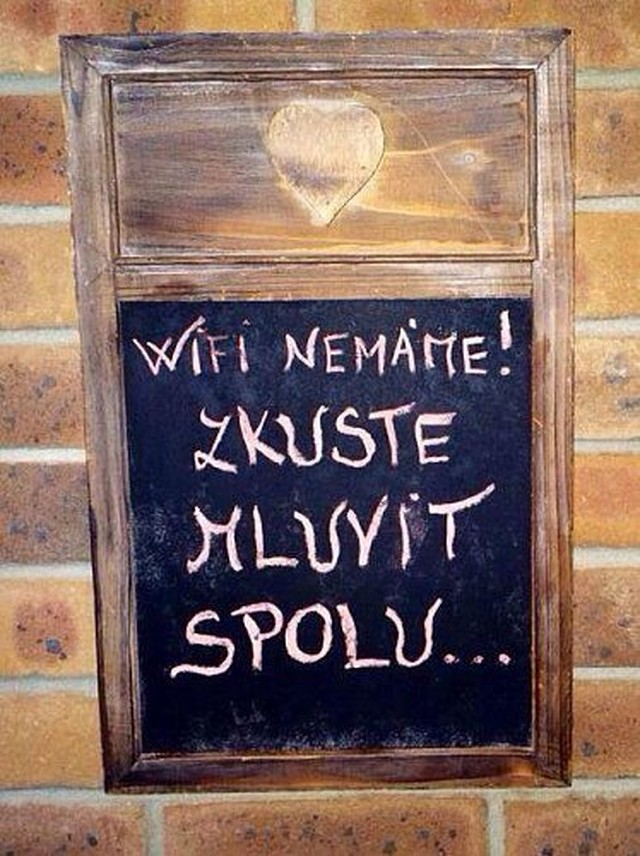 WiFi NEMÁME!
ZKUSTE
MLUViT
SPOLU...